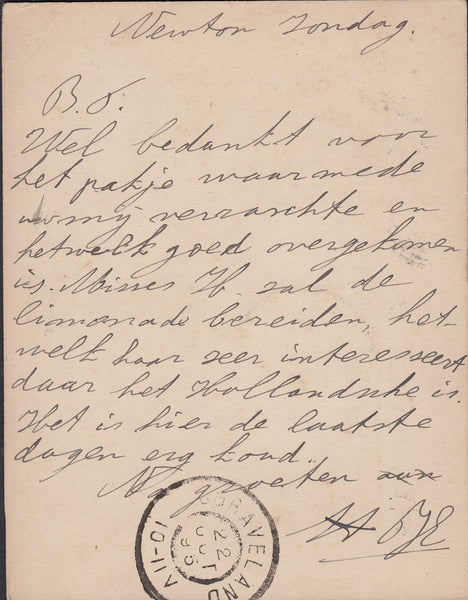 Newton Zondag.
B. d.
Wel bedankt voor
het pakje waarmede
uw mij verrarchte en
hetwelk goed overgekomen
is. Misses H. zal de
limonade bereiden, het-
welk haar zeer interesseert
daar het Hollandsche is.
Het is hier de laatste
dagen erg koud..
Na groeten aan
'S GRAVELAND
22
OCT
95
10-11V